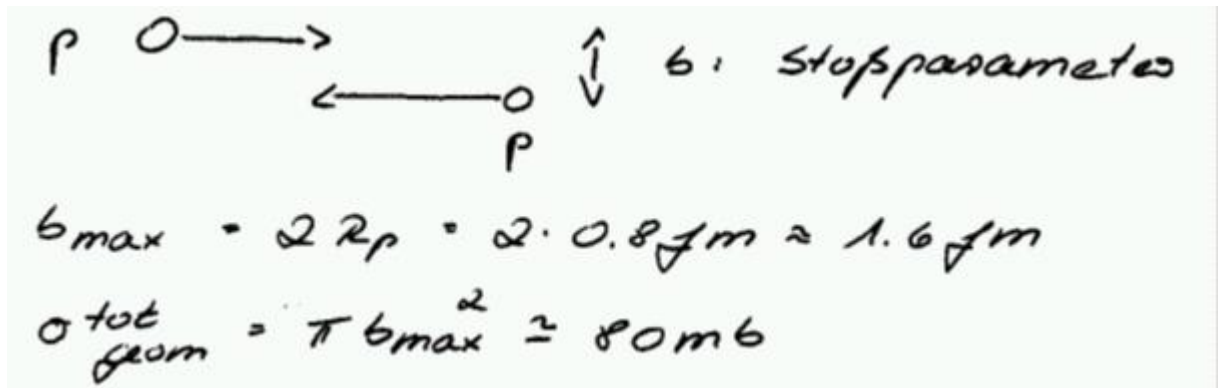 p b: Stoßparameter
p
b_max = 2 R_p = 2 · 0.8 fm ≈ 1.6 fm
σ^tot_geom = π b_max^2 ≃ 80 mb